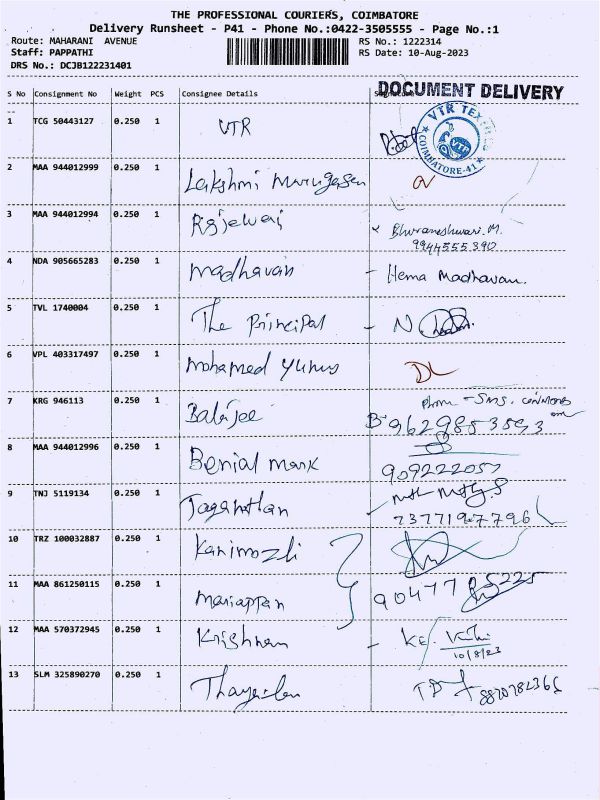 THE PROFESSIONAL COURIERS, COIMBATORE
Delivery Runsheet - P41 - Phone No.:0422-3505555 - Page No.:1
Route: MAHARANI AVENUE
RS No.: 1222314
Staff: PAPPATHI
RS Date: 10-Aug-2023
DRS No.: DCJB122231401
DOCUMENT DELIVERY
S No Consignment No Weight PCS Consignee Details
1 TCG 50443127 0.250 1 VTR
VTR TEX
VTR
COIMBATORE-41
2 MAA 944012999 0.250 1 Lakshmi Murugesan
3 MAA 944012994 0.250 1 Bhuvaneshwari.M.
9944555390
4 NDA 905665283 0.250 1 madhavan - Hema Madhavan.
5 TVL 1740004 0.250 1 The Principal - N
6 VPL 403317497 0.250 1 mohamed yunus DL
7 KRG 946113 0.250 1 Balajee Phone - SMS.
9629853593
8 MAA 944012996 0.250 1 Benial mark
909222057
9 TNJ 5119134 0.250 1 Jaganathan
7377197796
10 TRZ 100032887 0.250 1 Kanimozhi
11 MAA 861250115 0.250 1 mariappan 9047705225
12 MAA 570372945 0.250 1 Krishnan - KE.
10/8/23
13 SLM 325890270 0.250 1 8870782365